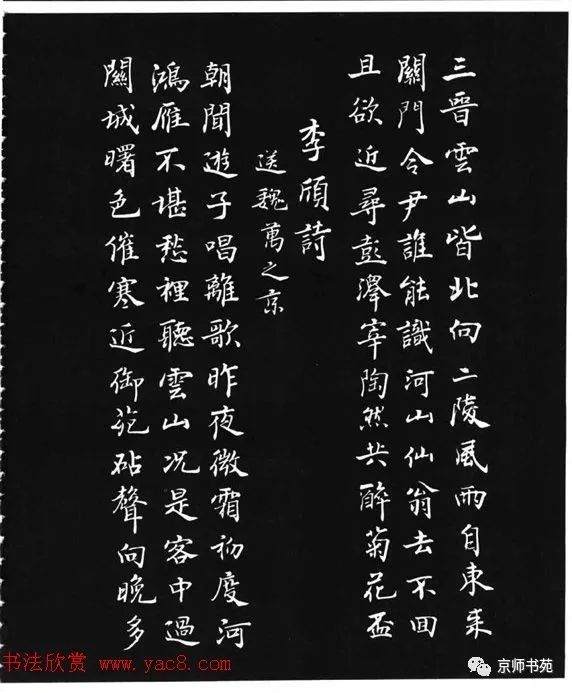 三晉雲山皆北向二陵風雨自東來
關門令尹誰能識河山仙翁去不回
且欲近尋彭澤宰陶然共醉菊花盃
李頎詩
送魏萬之京
朝聞遊子唱離歌昨夜微霜初度河
鴻雁不堪愁裡聽雲山况是客中過
關城曙色催寒近御苑砧聲向晚多
书法欣赏 www.yac8.com
京师书苑